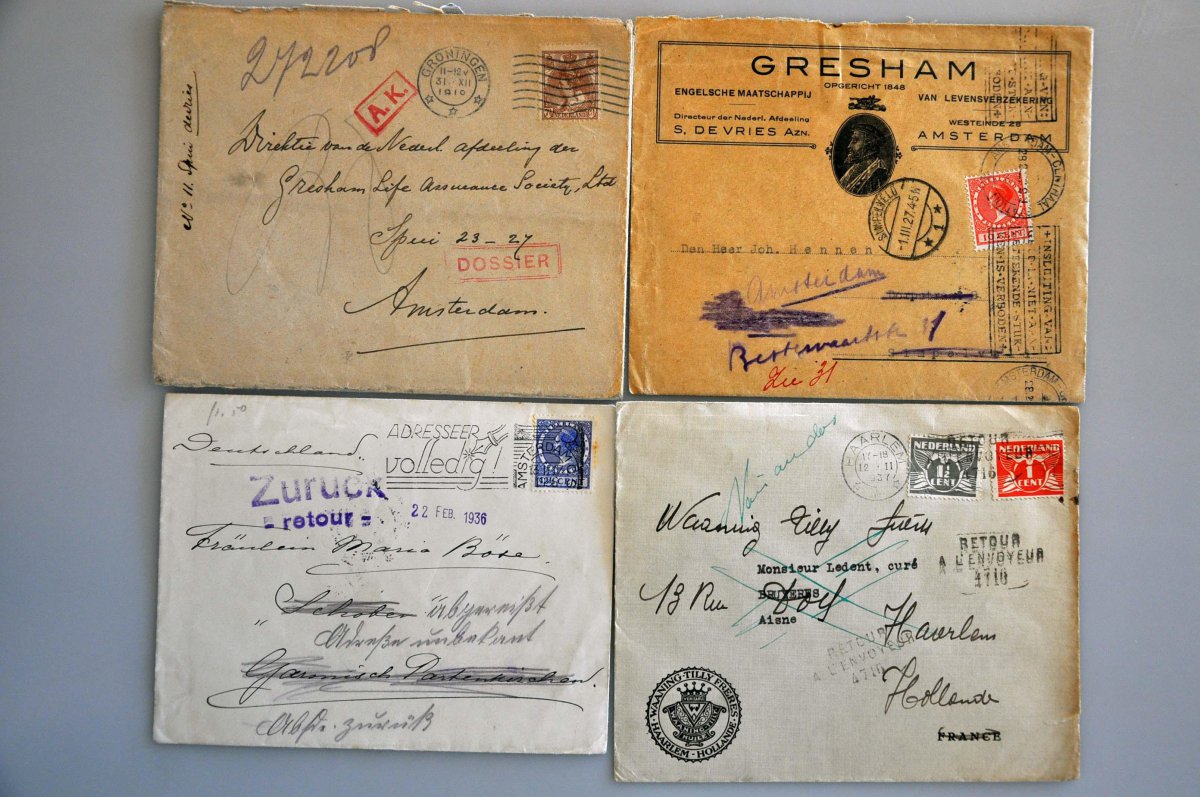 272208
No 11. Spui
A.K.
GRONINGEN
11-12 V
31 XII
1910
NEDERLAND
Direktie van de Nederl. afdeeling der
Gresham Life Assurance Society, Ltd
Spui 23-27
DOSSIER
Amsterdam.
GRESHAM
OPGERICHT 1848
ENGELSCHE MAATSCHAPPIJ
VAN LEVENSVERZEKERING
Directeur der Nederl. Afdeeling
S. DE VRIES AZN.
WESTEINDE 28
AMSTERDAM
SIMPELVELD
-1.III.27.4-5N
1
10 CENT
Den Heer Joh. Hennen
Amsterdam
Zie 31
INSLUITING VAN
IS VERBODEN
AMSTERDAM
f1.50
Deutschland.
ADRESSEER
volledig!
Zurück
= retour =
22 FEB. 1936
Fräulein Maria Böse.
Schober abgereißt
Adreße unbekant
Garmisch Partenkirchen.
Absdr. zurück
HAARLEM
17-18
12 II
NEDERLAND
1½
CENT
NEDERLAND
1
CENT
RETOUR
4710
Waaning Tilly Frères
Monsieur Ledent, curé
BRUYERES
Aisne
13 Rue Dolf
Haarlem
Hollande
FRANCE
RETOUR
A L'ENVOYEUR
4710
RETOUR
A L'ENVOYEUR
4710
WAANING-TILLY FRERES
HAARLEM-HOLLANDE